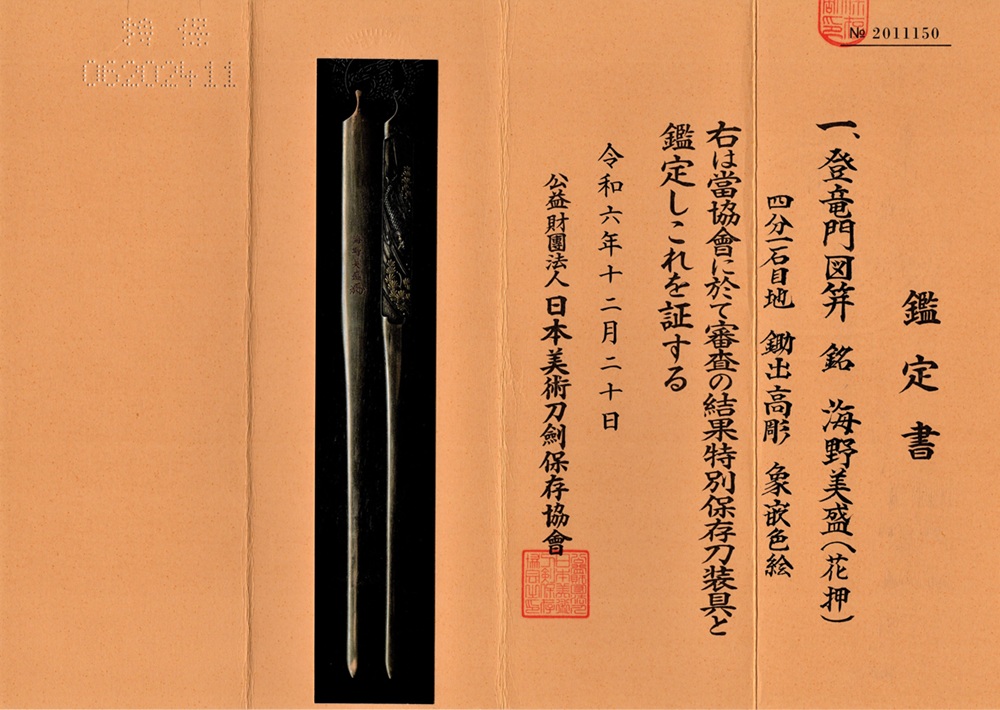 № 2011150
鑑定書
一、登竜門図笄 銘 海野美盛(花押)
四分一石目地 鋤出高彫 象嵌色絵
右は當協會に於て審査の結果特別保存刀装具と
鑑定しこれを証する
令和六年十二月二十日
公益財團法人 日本美術刀劍保存協會
特保
06202411